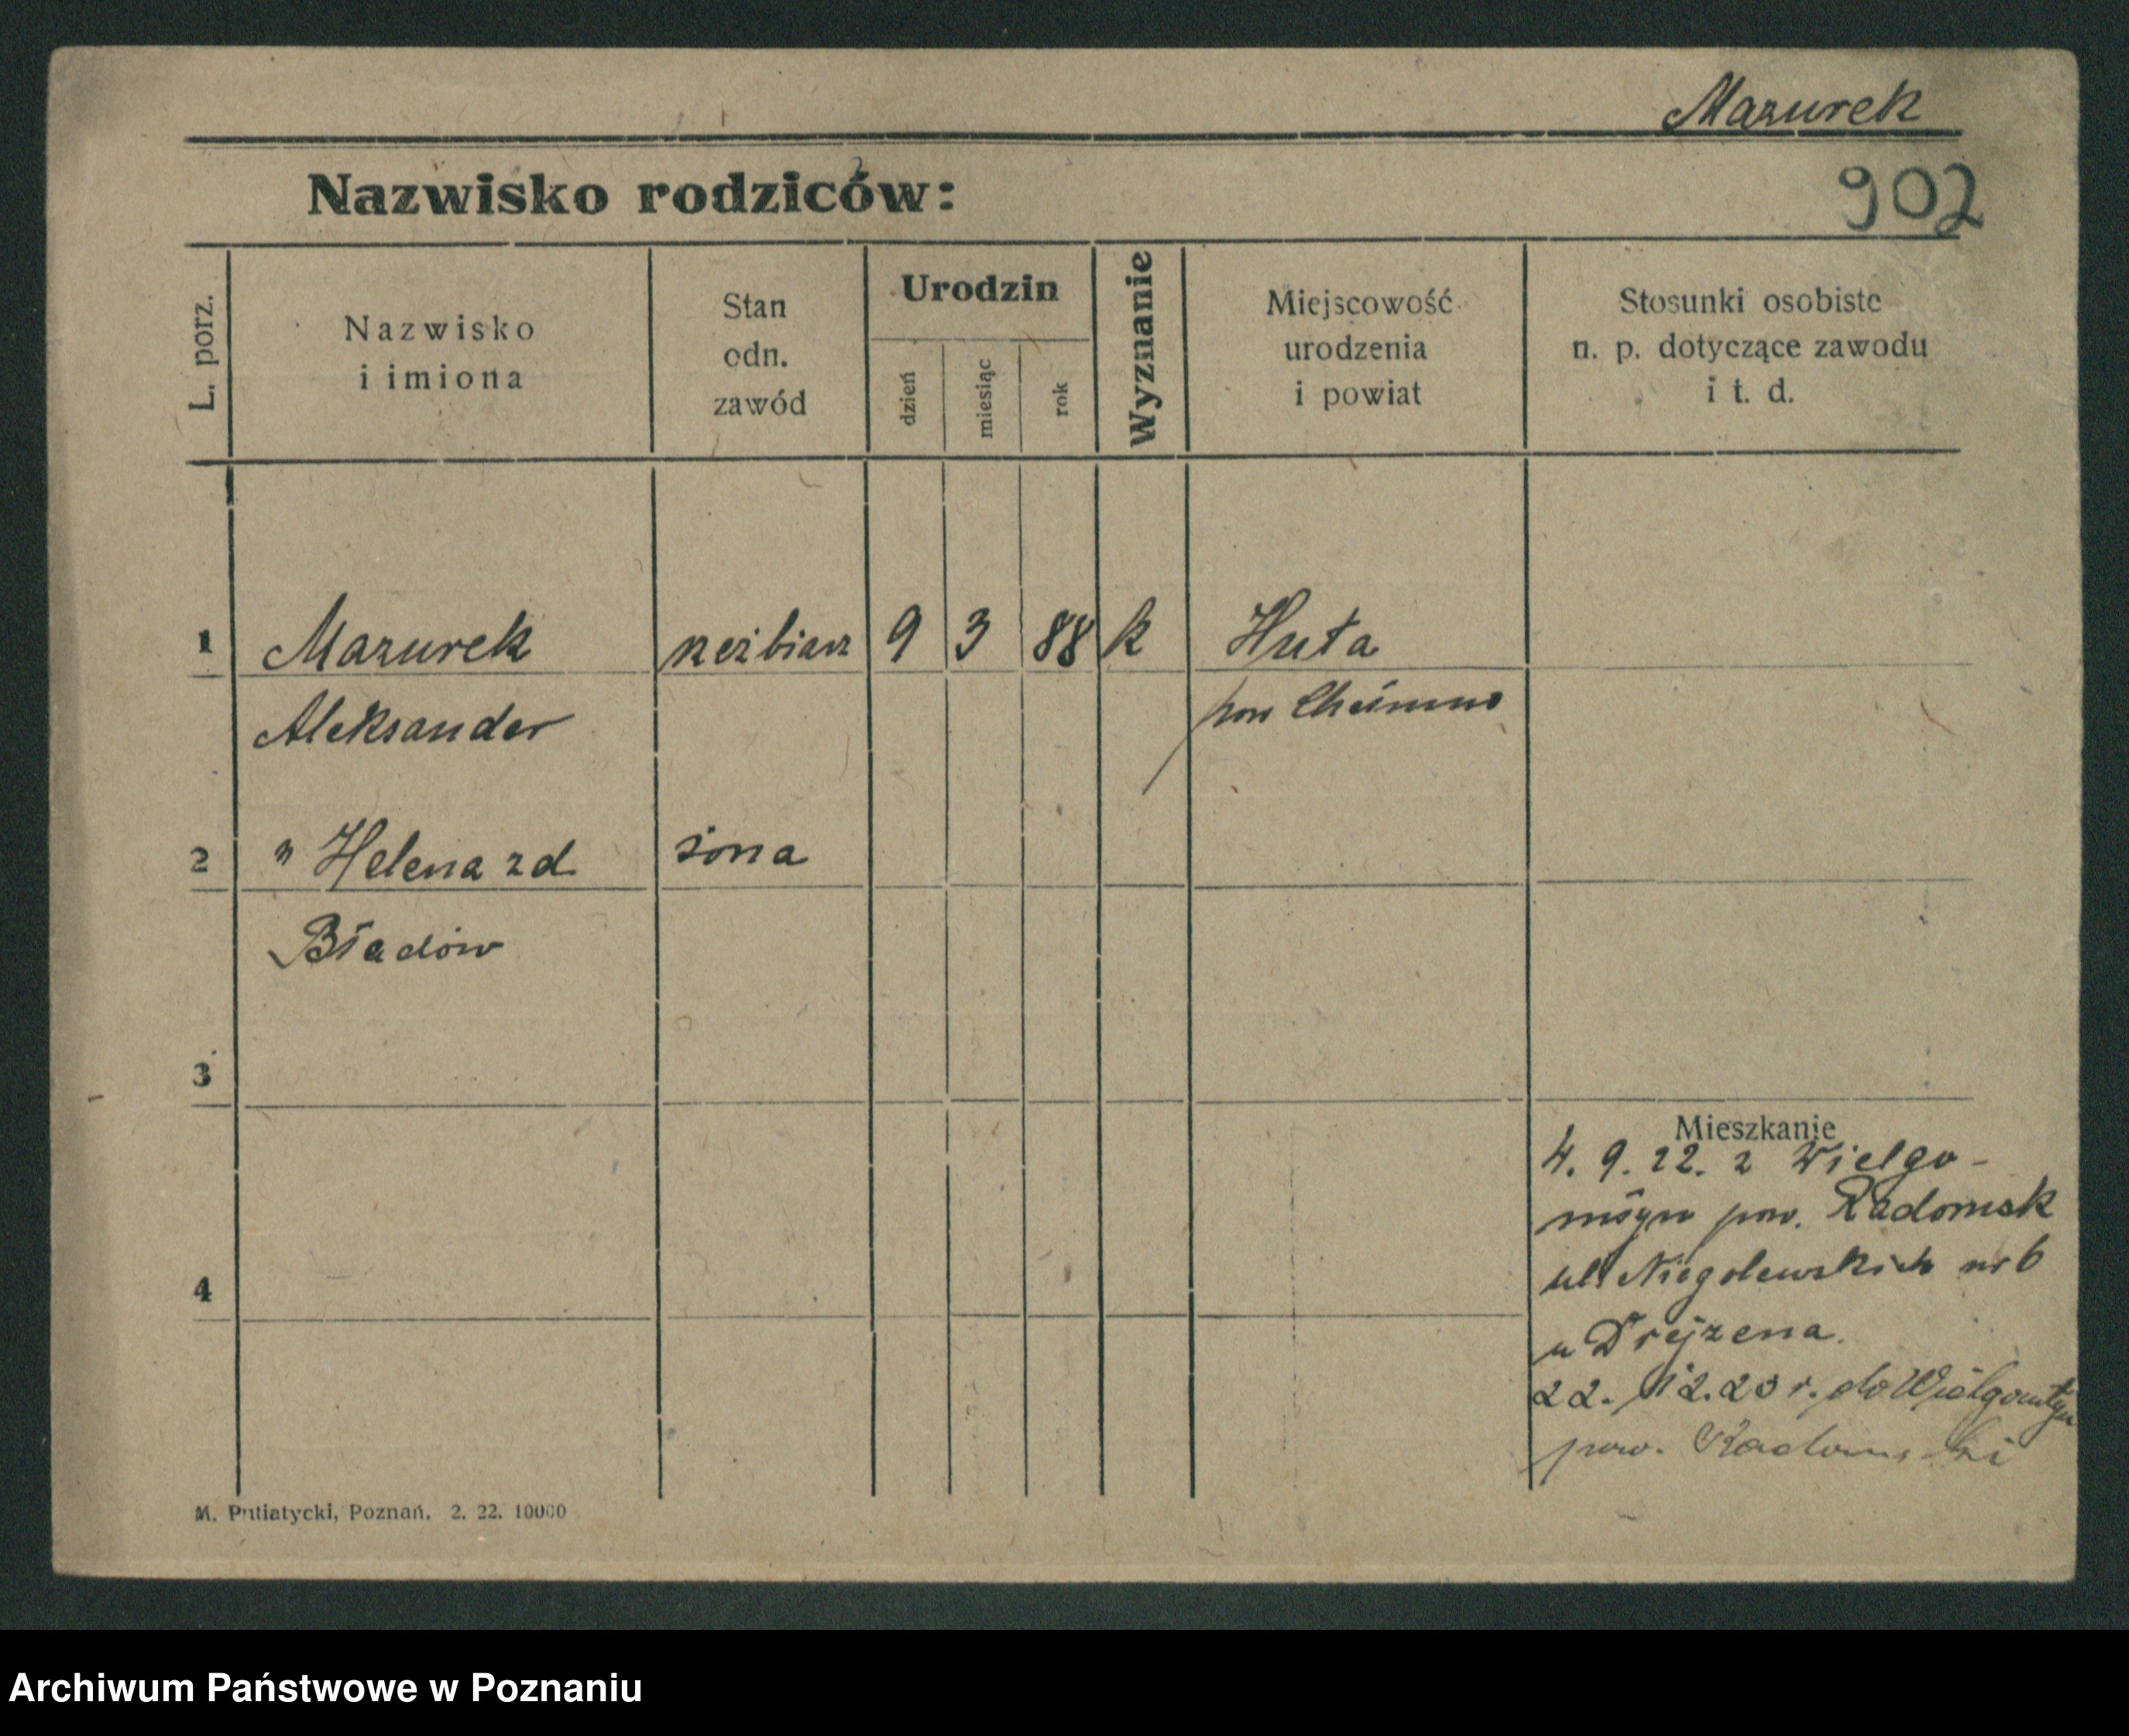 Mazurek
Nazwisko rodziców:
902
L. porz.
Nazwisko
i imiona
Stan
odn.
zawód
Urodzin
dzień
miesiąc
rok
Wyznanie
Miejscowość
urodzenia
i powiat
Stosunki osobiste
n. p. dotyczące zawodu
i t. d.
1 Mazurek rzeźbiarz 9 3 88 k Huta
Aleksander pow
2 " Helena z d. żona
Bładów
3
Mieszkanie
4. 9. 22. z Wielgo-
młyn pow. Radomsk
ul. Niegolewskich nr 6
4
u Drejzena.
22. 12. 23 r. do Wielgomłyn
pow.
M. Putiatycki, Poznań. 2. 22. 10000
Archiwum Państwowe w Poznaniu